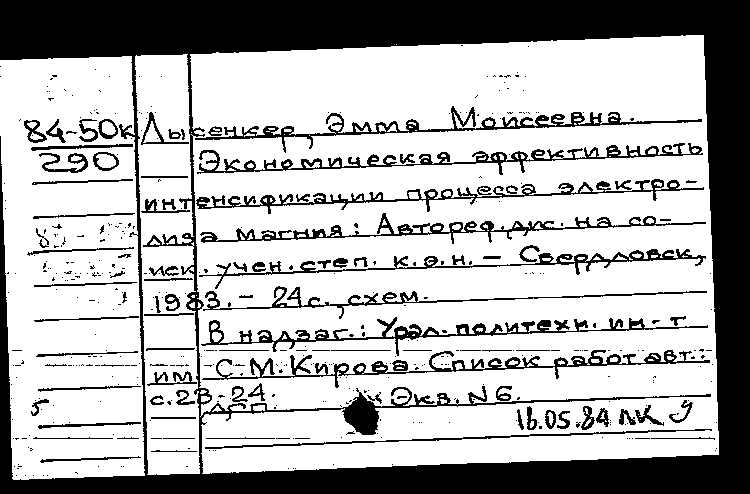 84-50к Лысенкер, Эмма Моисеевна.
290 Экономическая эффективность
интенсификации процесса электро-
лиза магния: Автореф. дис. на со-
иск. учен. степ. к.э.н. – Свердловск,
1983. – 24 с., схем.
В надзаг.: Урал. политехн. ин-т
им. С.М. Кирова. Список работ авт.:
с. 23-24.
5 Экз. N 6.
16.05.84 ЛК